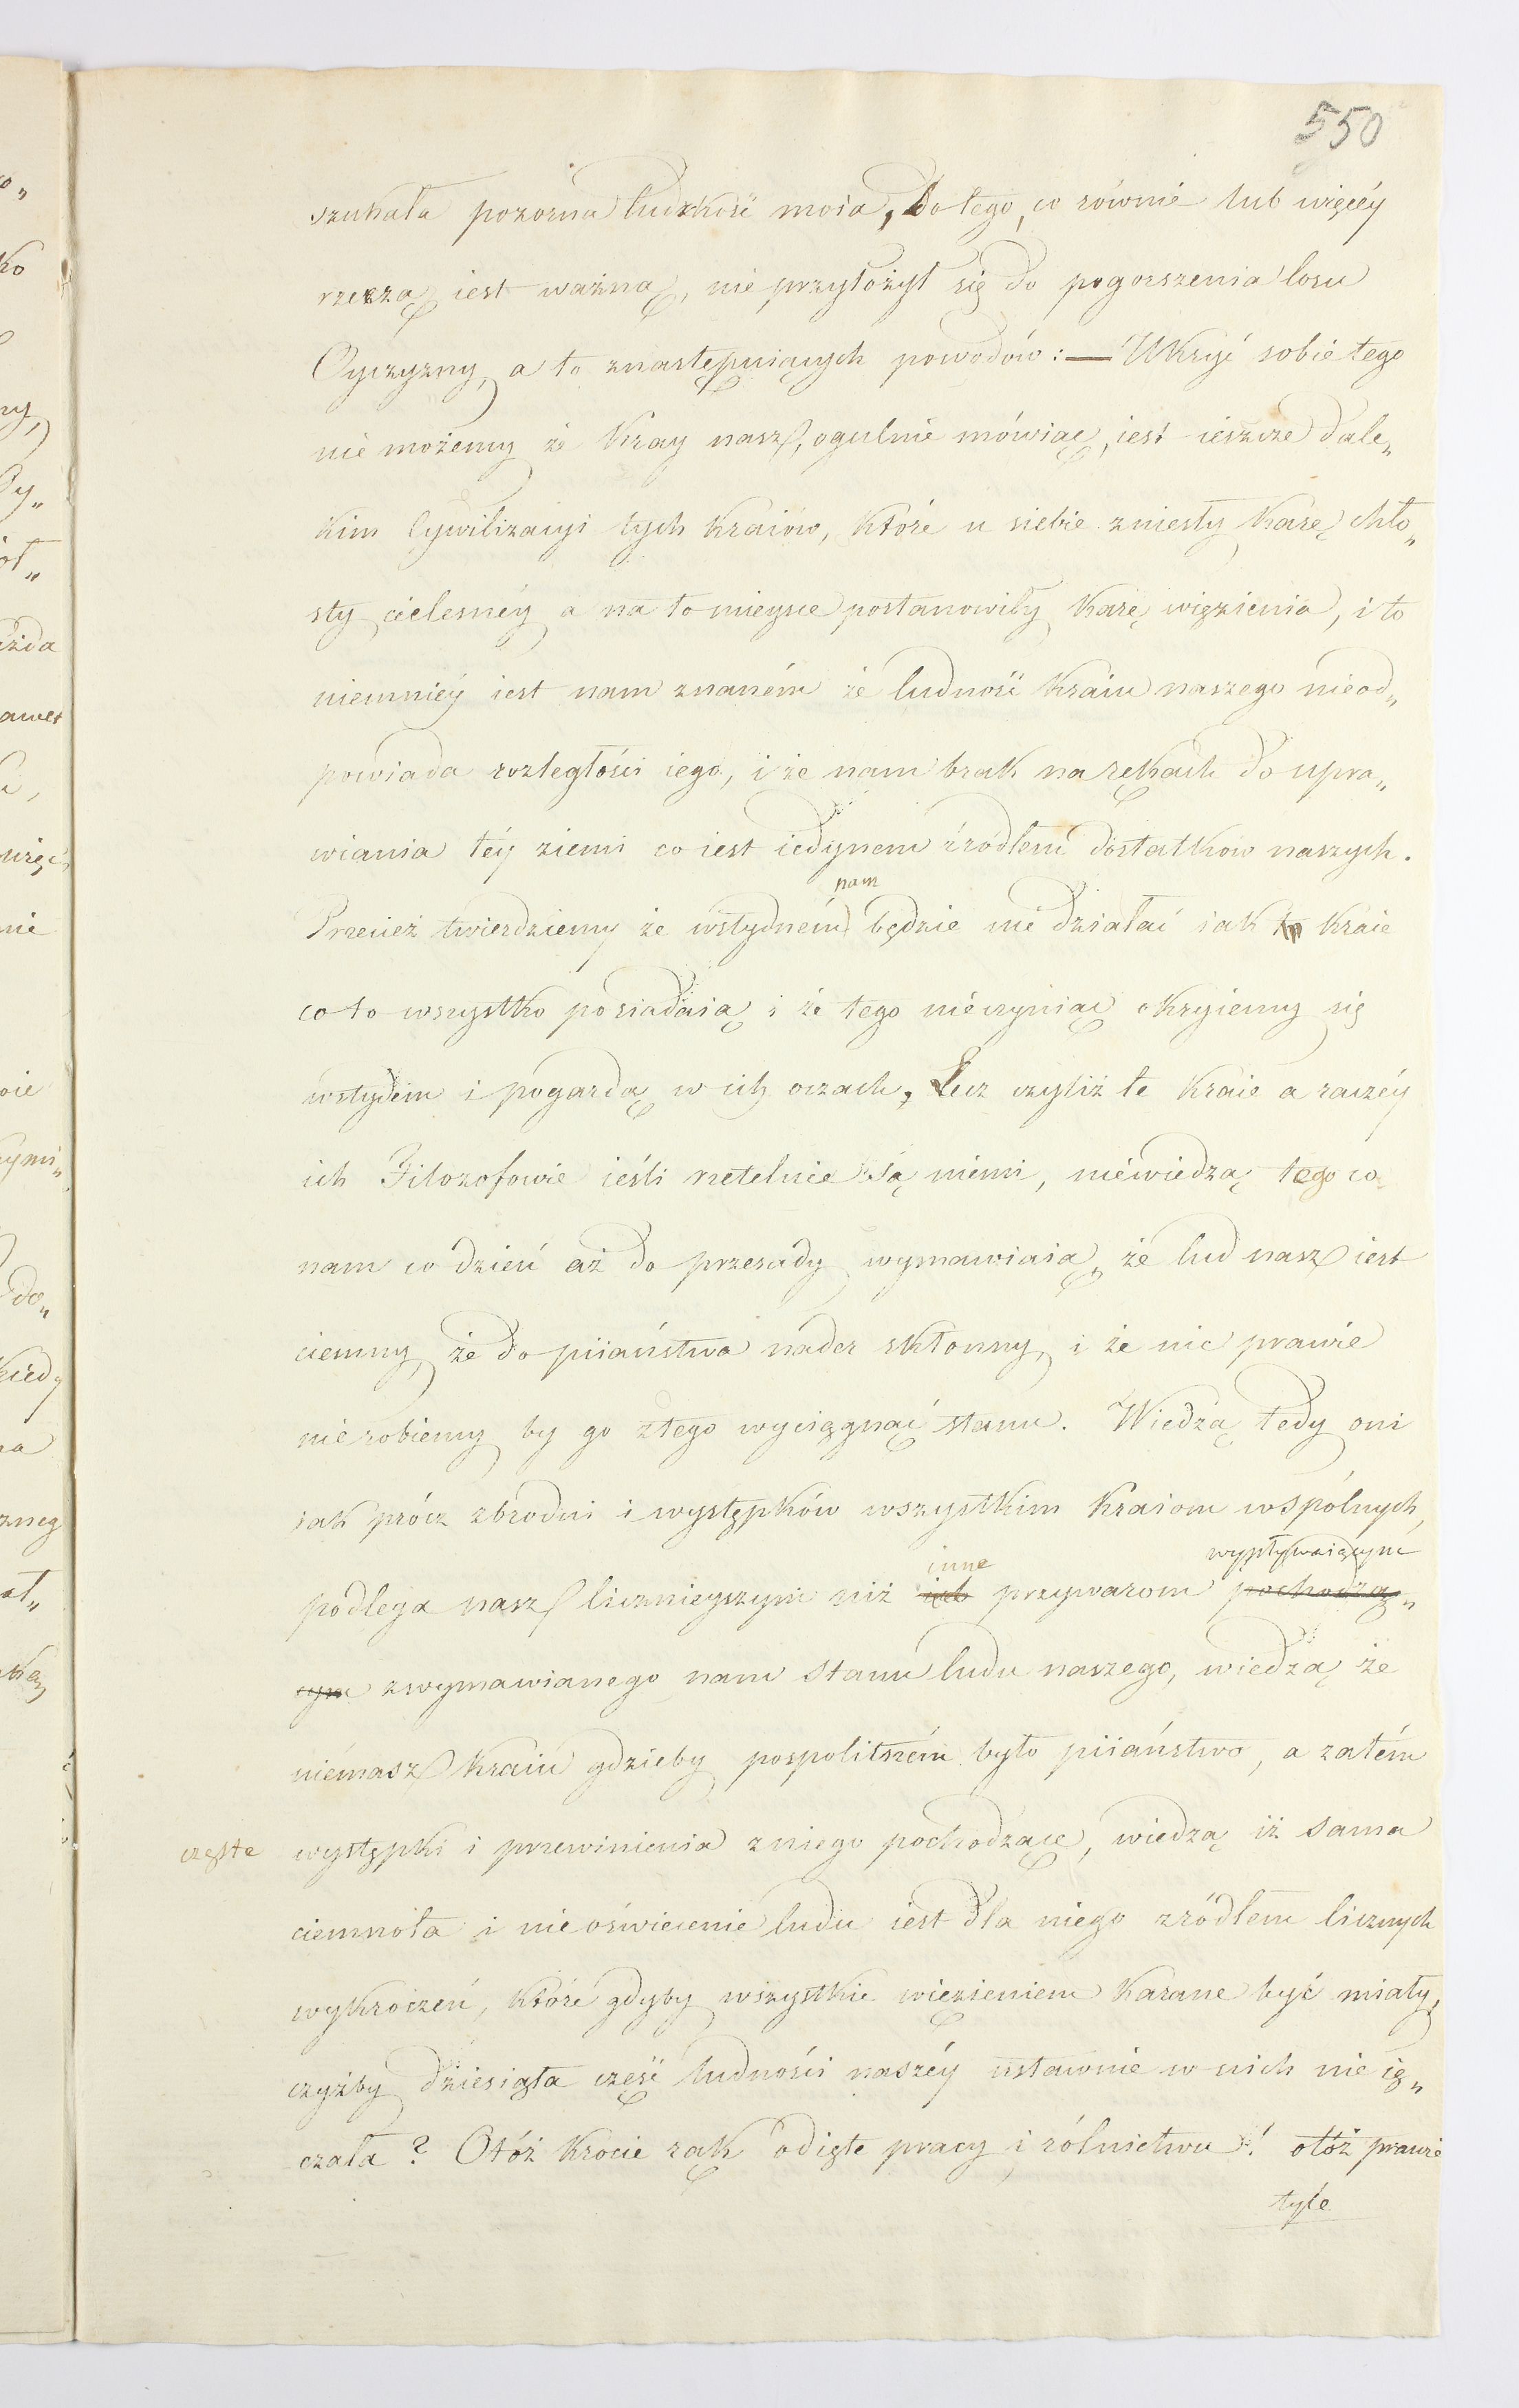 550
szukała pozorna ludzkość moia, Do tego, co równie lub więcéy
rzeczą iest ważną, nie przyłożył się do pogorszenia losu
Oyczyzny, a to znastępuiących powodów: — Ukryć sobie tego
nie możemy że Kray nasz, ogulnie mówiąc, iest ieszcze dale„
kim Cywilizacyi tych Kraiów, które u siebie zniesły Karę chło„
sty cielesnéy a na to mieysce postanowiły Karę więzienia, i to
niemniéy iest nam znaném że ludność Kraiu naszego nieod„
powiada rozległości iego, i że nam brak na rękach do upra„
wiania téy ziemi co iest iedynem źródłem dostatków naszych.
nam
Przecież twierdziemy że wstydném będzie nie działać iak te Kraie
co to wszystko posiadaią i że tego nieczyniąc okryiemy się
wstydem i pogardą w ich oczach, Lecz czyliż te Kraie a raczéy
ich Filozofowie ieśli rzetelnie są niemi, niewiedzą tego co
nam co dzień aż do przesady wymawiaią, że lud nasz iest
ciemny, że do piiaństwa nader skłonny, i że nic prawie
nie robiemy by go ztego wyciągnąć stanu. Wiedzą tedy oni
iak prócz zbrodni i występków wszystkim Kraiom wspólnych,
inne wypływaiącym
podlega nasz licznieyszym niż ich przywarom pochodzą„
cym zwymawianego nam stanu ludu naszego, wiedzą że
niémasz Kraiu gdzieby pospolitszém było piiaństwo, a zatém
częste występki i przewinienia zniego pochodzące, wiedzą iż sama
ciemnota i nieoświecenie ludu iest dla niego źródłem licznych
wykroczeń, które gdyby wszystkie więzieniem Karane być miały,
czyżby dziesiąta część ludności naszéy ustawnie w nich nie ię„
czała? Otóż Krocie rąk odięte pracy i rólnictwu! otóż prawie
tyle